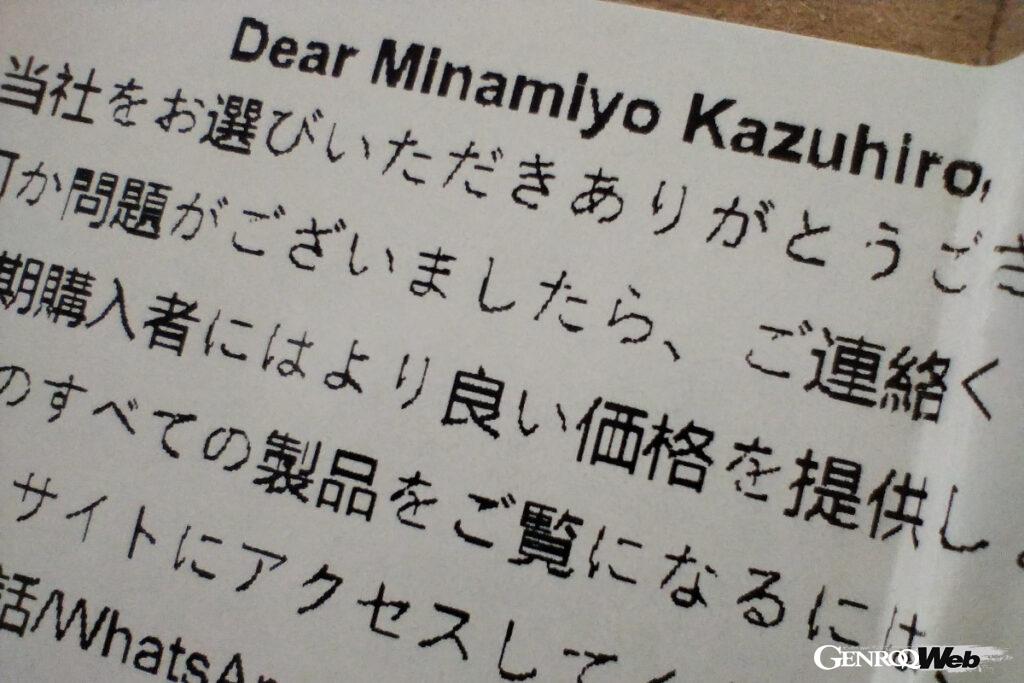 Dear Minamiyo Kazuhiro,
当社をお選びいただきありがとうござ
か問題がございましたら、ご連絡く
期購入者にはより良い価格を提供し
のすべての製品をご覧になるには、
サイトにアクセスして
話/WhatsA
GENROQ Web